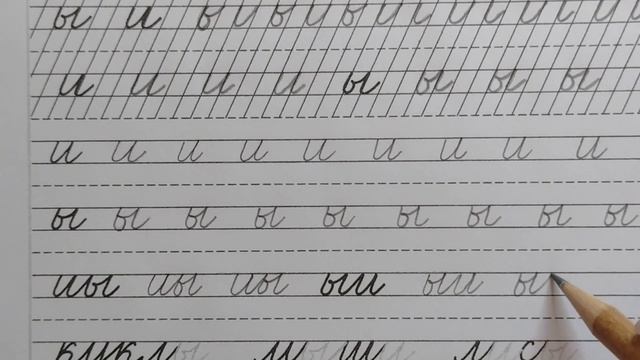 ы и ы и ы и ы и и и и и и и
и и и и ы ы ы ы
и и и и и и и и и
ы ы ы ы ы ы ы ы ы
иы иы иы ыи ыи ы
куклы